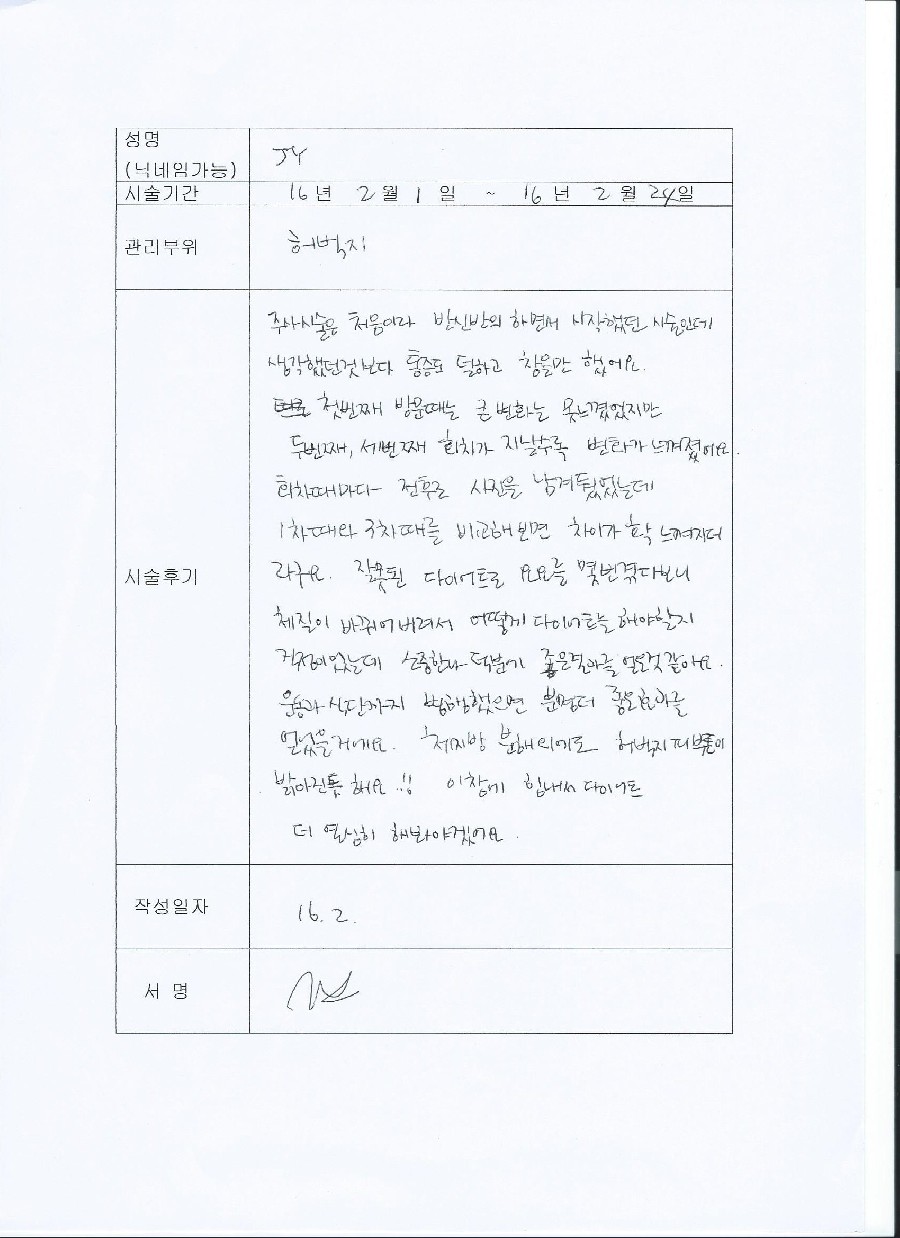 성명
(닉네임가능)
JY
시술기간
16년 2월 1일 ~ 16년 2월 24일
관리부위
허벅지
시술후기
주사시술은 처음이라 반신반의 하면서 시작했던 시술인데
생각했던것보다 통증도 덜하고 참을만 했어요.
첫번째 방문때는 큰 변화는 못느꼈었지만
두번째, 세번째 회차가 지날수록 변화가 느껴졌어요.
회차때마다 전후로 사진을 남겨뒀었는데
1차때와 3차때를 비교해보면 차이가 확 느껴지더
라구요. 잘못된 다이어트로 요요를 몇번겪다보니
체질이 바뀌어버려서 어떻게 다이어트를 해야할지
걱정이었는데 덕분에 좋은결과를 얻은것 같아요.
운동과 식단까지 병행했으면 분명더 좋은효과를
얻었을거에요. 체지방 분해외에도 허벅지피부톤이
밝아진듯 해요!! 이참에 힘내서 다이어트
더 열심히 해봐야겠어요.
작성일자
16. 2.
서 명